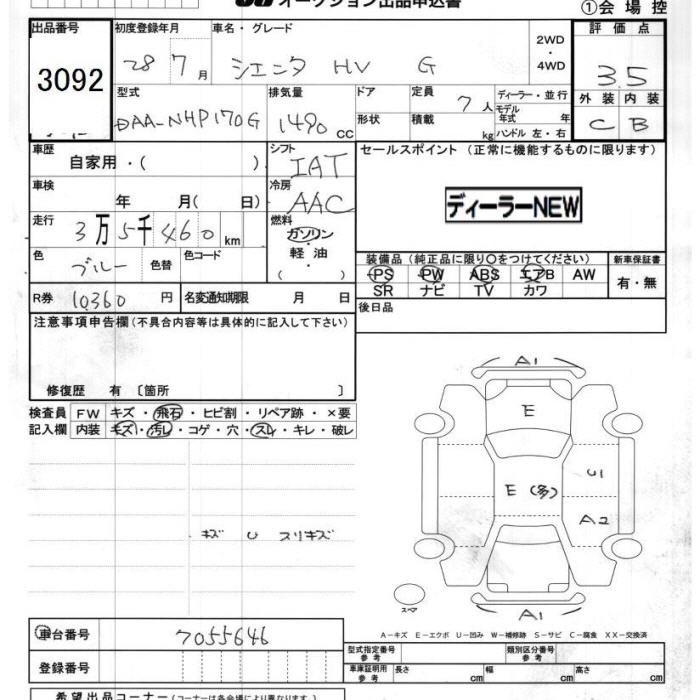 オークション出品申込書
①会場控
出品番号
3092
初度登録年月 28 7月
車名・グレード シエンタ HV G
2WD・4WD
評価点 3.5
外装 C 内装 B
型式 DAA-NHP170G
排気量 1490 cc
ドア 形状
定員 7人 積載 kg
ディーラー・並行
モデル年式 年
ハンドル 左・右
車歴 自家用・( )
シフト IAT
セールスポイント (正常に機能するものに限ります)
ディーラーNEW
車検 年 月( 日)
冷房 AAC
走行 3万5千460km
燃料 ガソリン・軽油・( )
色 ブルー 色替 色コード
装備品(純正品に限り○をつけてください)
PS PW ABS エアB AW
SR ナビ TV カワ
新車保証書 有・無
R券 10360円 名変通知期限 月 日
後日品
注意事項申告欄(不具合内容等は具体的に記入して下さい)
修復歴 有 〔箇所 〕
検査員記入欄
FW キズ・飛石・ヒビ割・リペア跡・×要
内装 キズ・汚レ・コゲ・穴・スレ・キレ・破レ
キズ U スリキズ
A1
E
E(多)
U1
A2
スペア
A1
A-キズ E-エクボ U-凹み W-補修跡 S-サビ C-腐食 XX-交換済
車台番号 7055646
登録番号
型式指定番号 参考
類別区分番号 参考
車庫証明用 参考 長さ cm 幅 cm 高さ cm
希望出品コーナー(コーナーは各会場により異なります。)